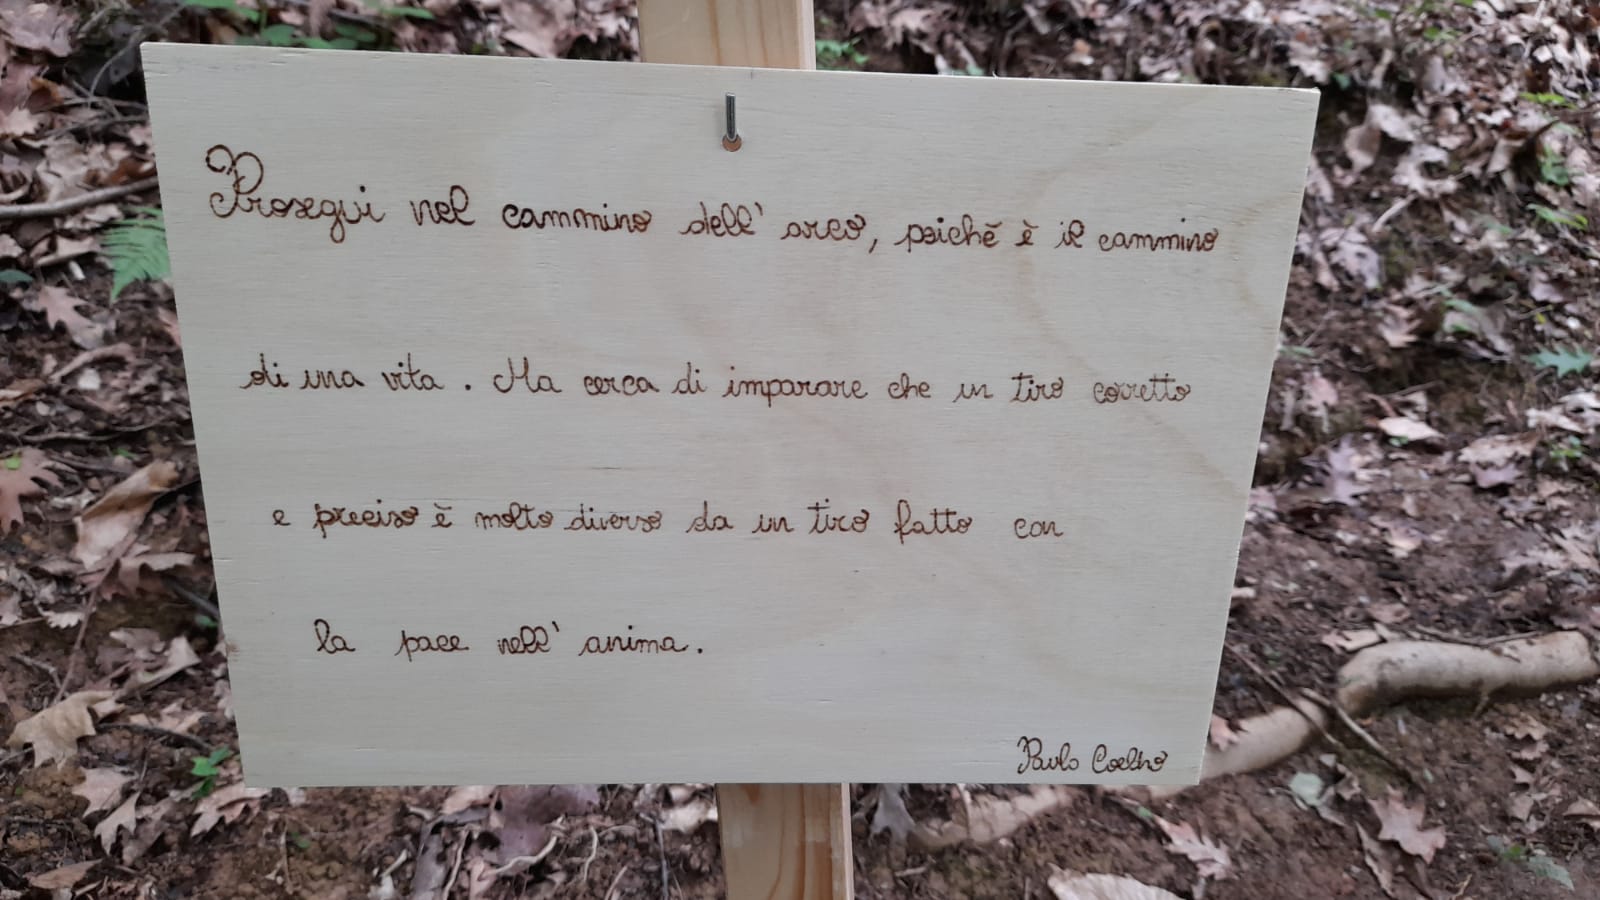 Prosegui nel cammino dell'arco, poichè è il cammino
di una vita. Ma cerca di imparare che un tiro corretto
e preciso è molto diverso da un tiro fatto con
la pace nell'anima.
Paulo Coelho